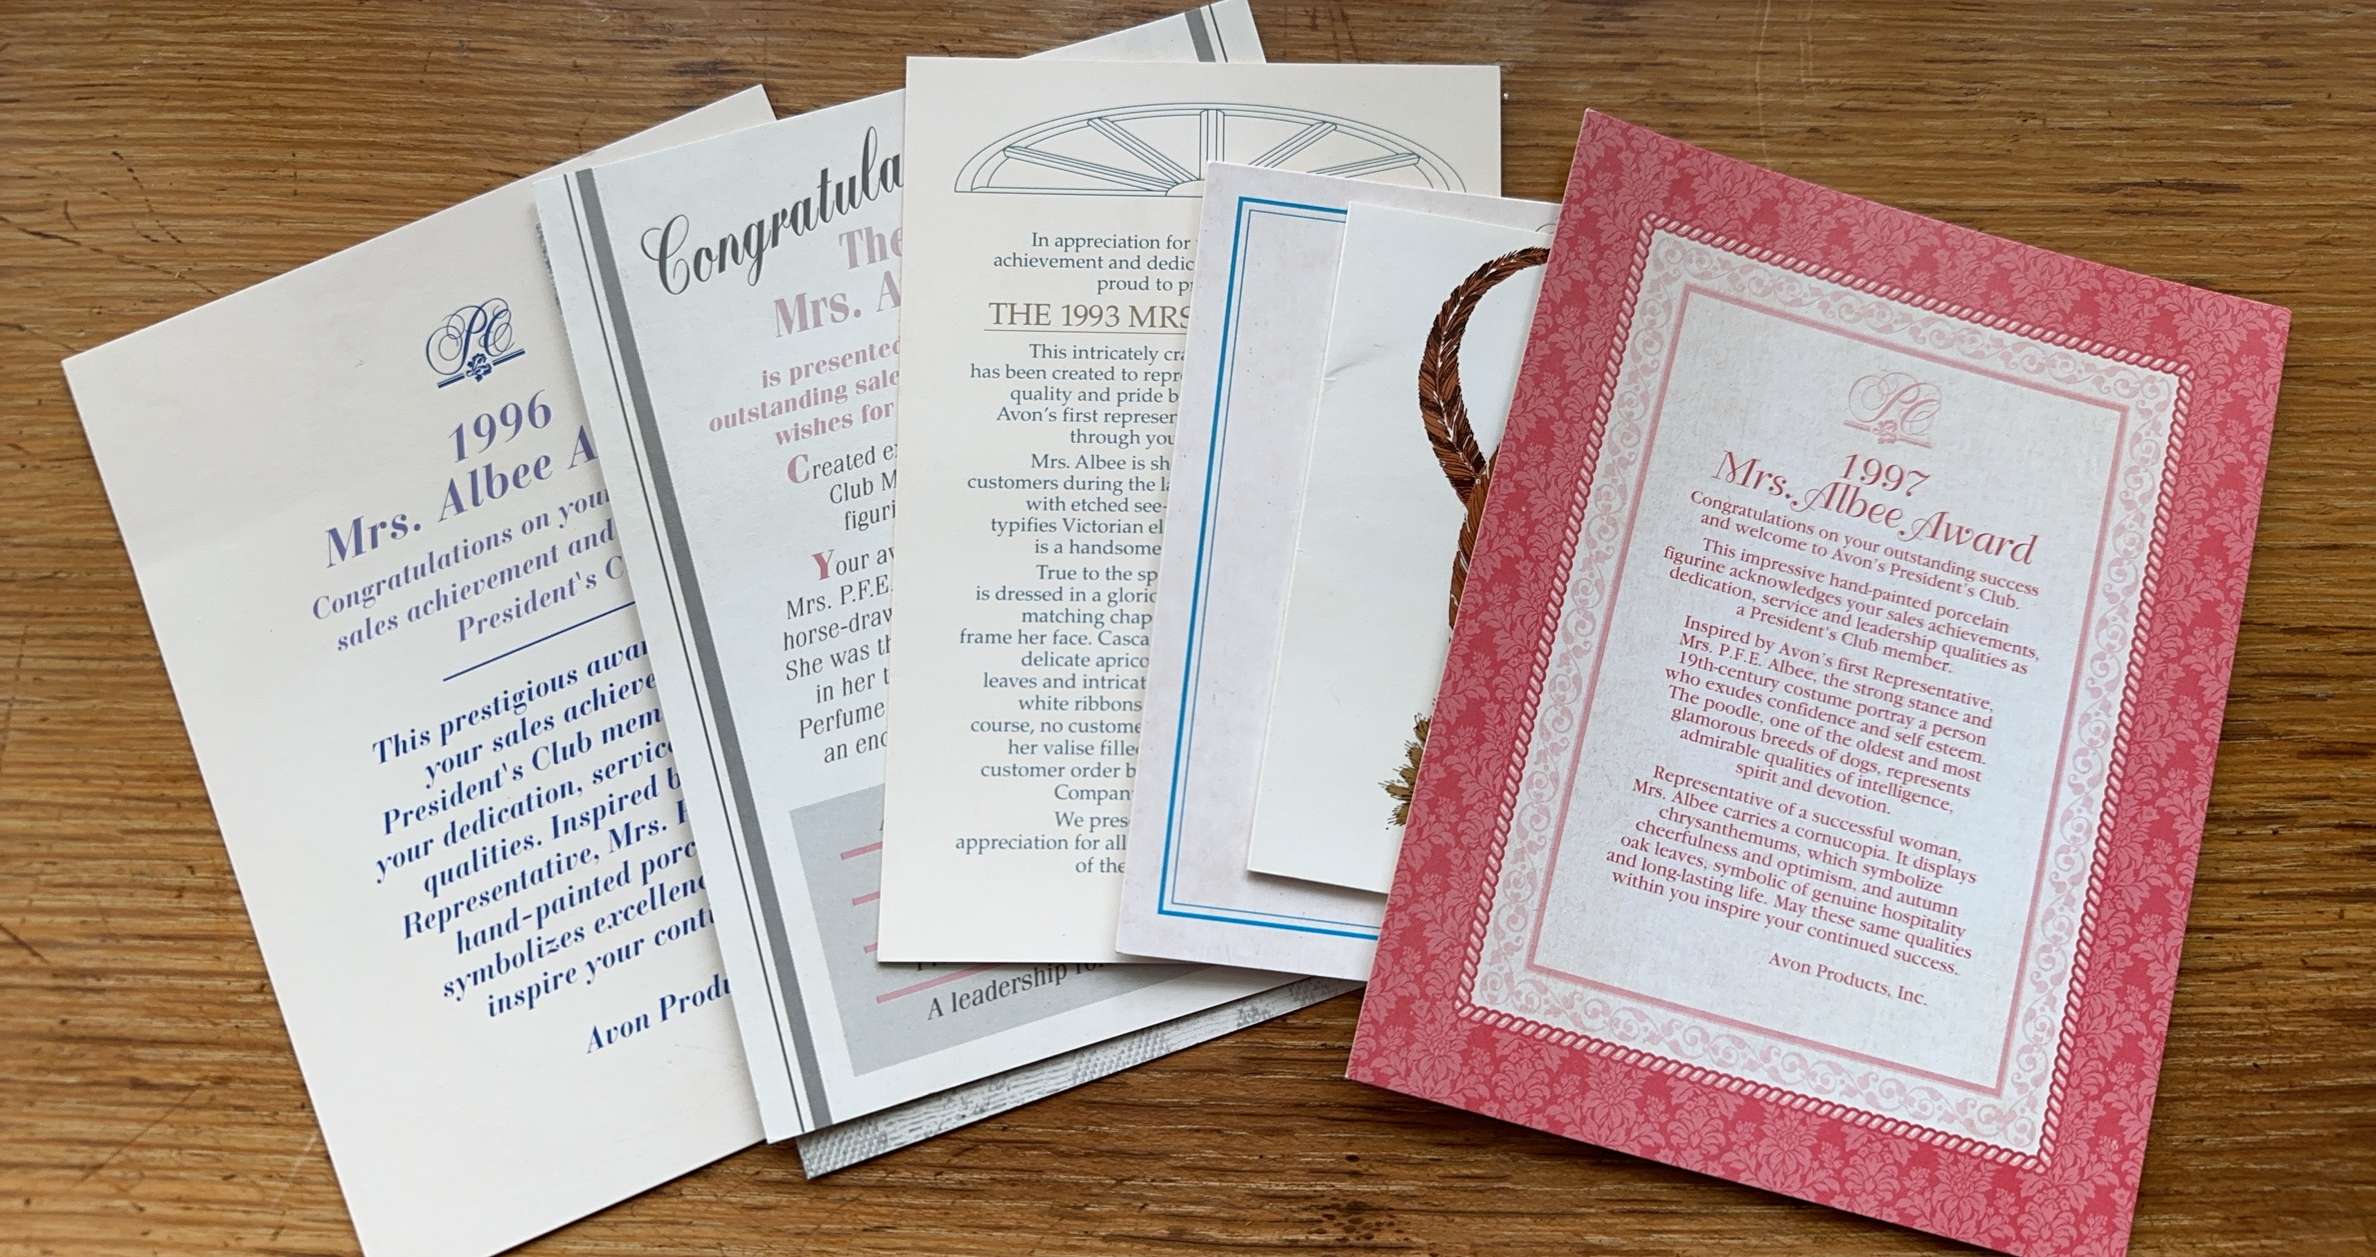 PC
1996
Mrs. Albee A
Congratulations on you
sales achievement and
President's C
This prestigious awa
your sales achieve
President's Club mem
your dedication, servic
qualities. Inspired b
Representative, Mrs. P
hand-painted porc
symbolizes excellen
inspire your cont
Avon Produ
Congratula
The
Mrs. A
is presented
outstanding sale
wishes for
Created e
Club M
figuri
Your aw
Mrs. P.F.E.
horse-draw
She was th
in her t
Perfume
an enc
A leadership fo
In appreciation for
achievement and dedic
proud to p
THE 1993 MRS
This intricately cra
has been created to repr
quality and pride b
Avon's first represen
through you
Mrs. Albee is sh
customers during the la
with etched see-
typifies Victorian el
is a handsome
True to the sp
is dressed in a glorio
matching chap
frame her face. Casca
delicate aprico
leaves and intricat
white ribbons
course, no custome
her valise fille
customer order b
Compan
We pres
appreciation for all
of the
PC
1997
Mrs. Albee Award
Congratulations on your outstanding success
and welcome to Avon's President's Club.
This impressive hand-painted porcelain
figurine acknowledges your sales achievements,
dedication, service and leadership qualities as
a President's Club member.
Inspired by Avon's first Representative,
Mrs. P.F.E. Albee, the strong stance and
19th-century costume portray a person
who exudes confidence and self esteem.
The poodle, one of the oldest and most
glamorous breeds of dogs, represents
admirable qualities of intelligence,
spirit and devotion.
Representative of a successful woman,
Mrs. Albee carries a cornucopia. It displays
chrysanthemums, which symbolize
cheerfulness and optimism, and autumn
oak leaves, symbolic of genuine hospitality
and long-lasting life. May these same qualities
within you inspire your continued success.
Avon Products, Inc.